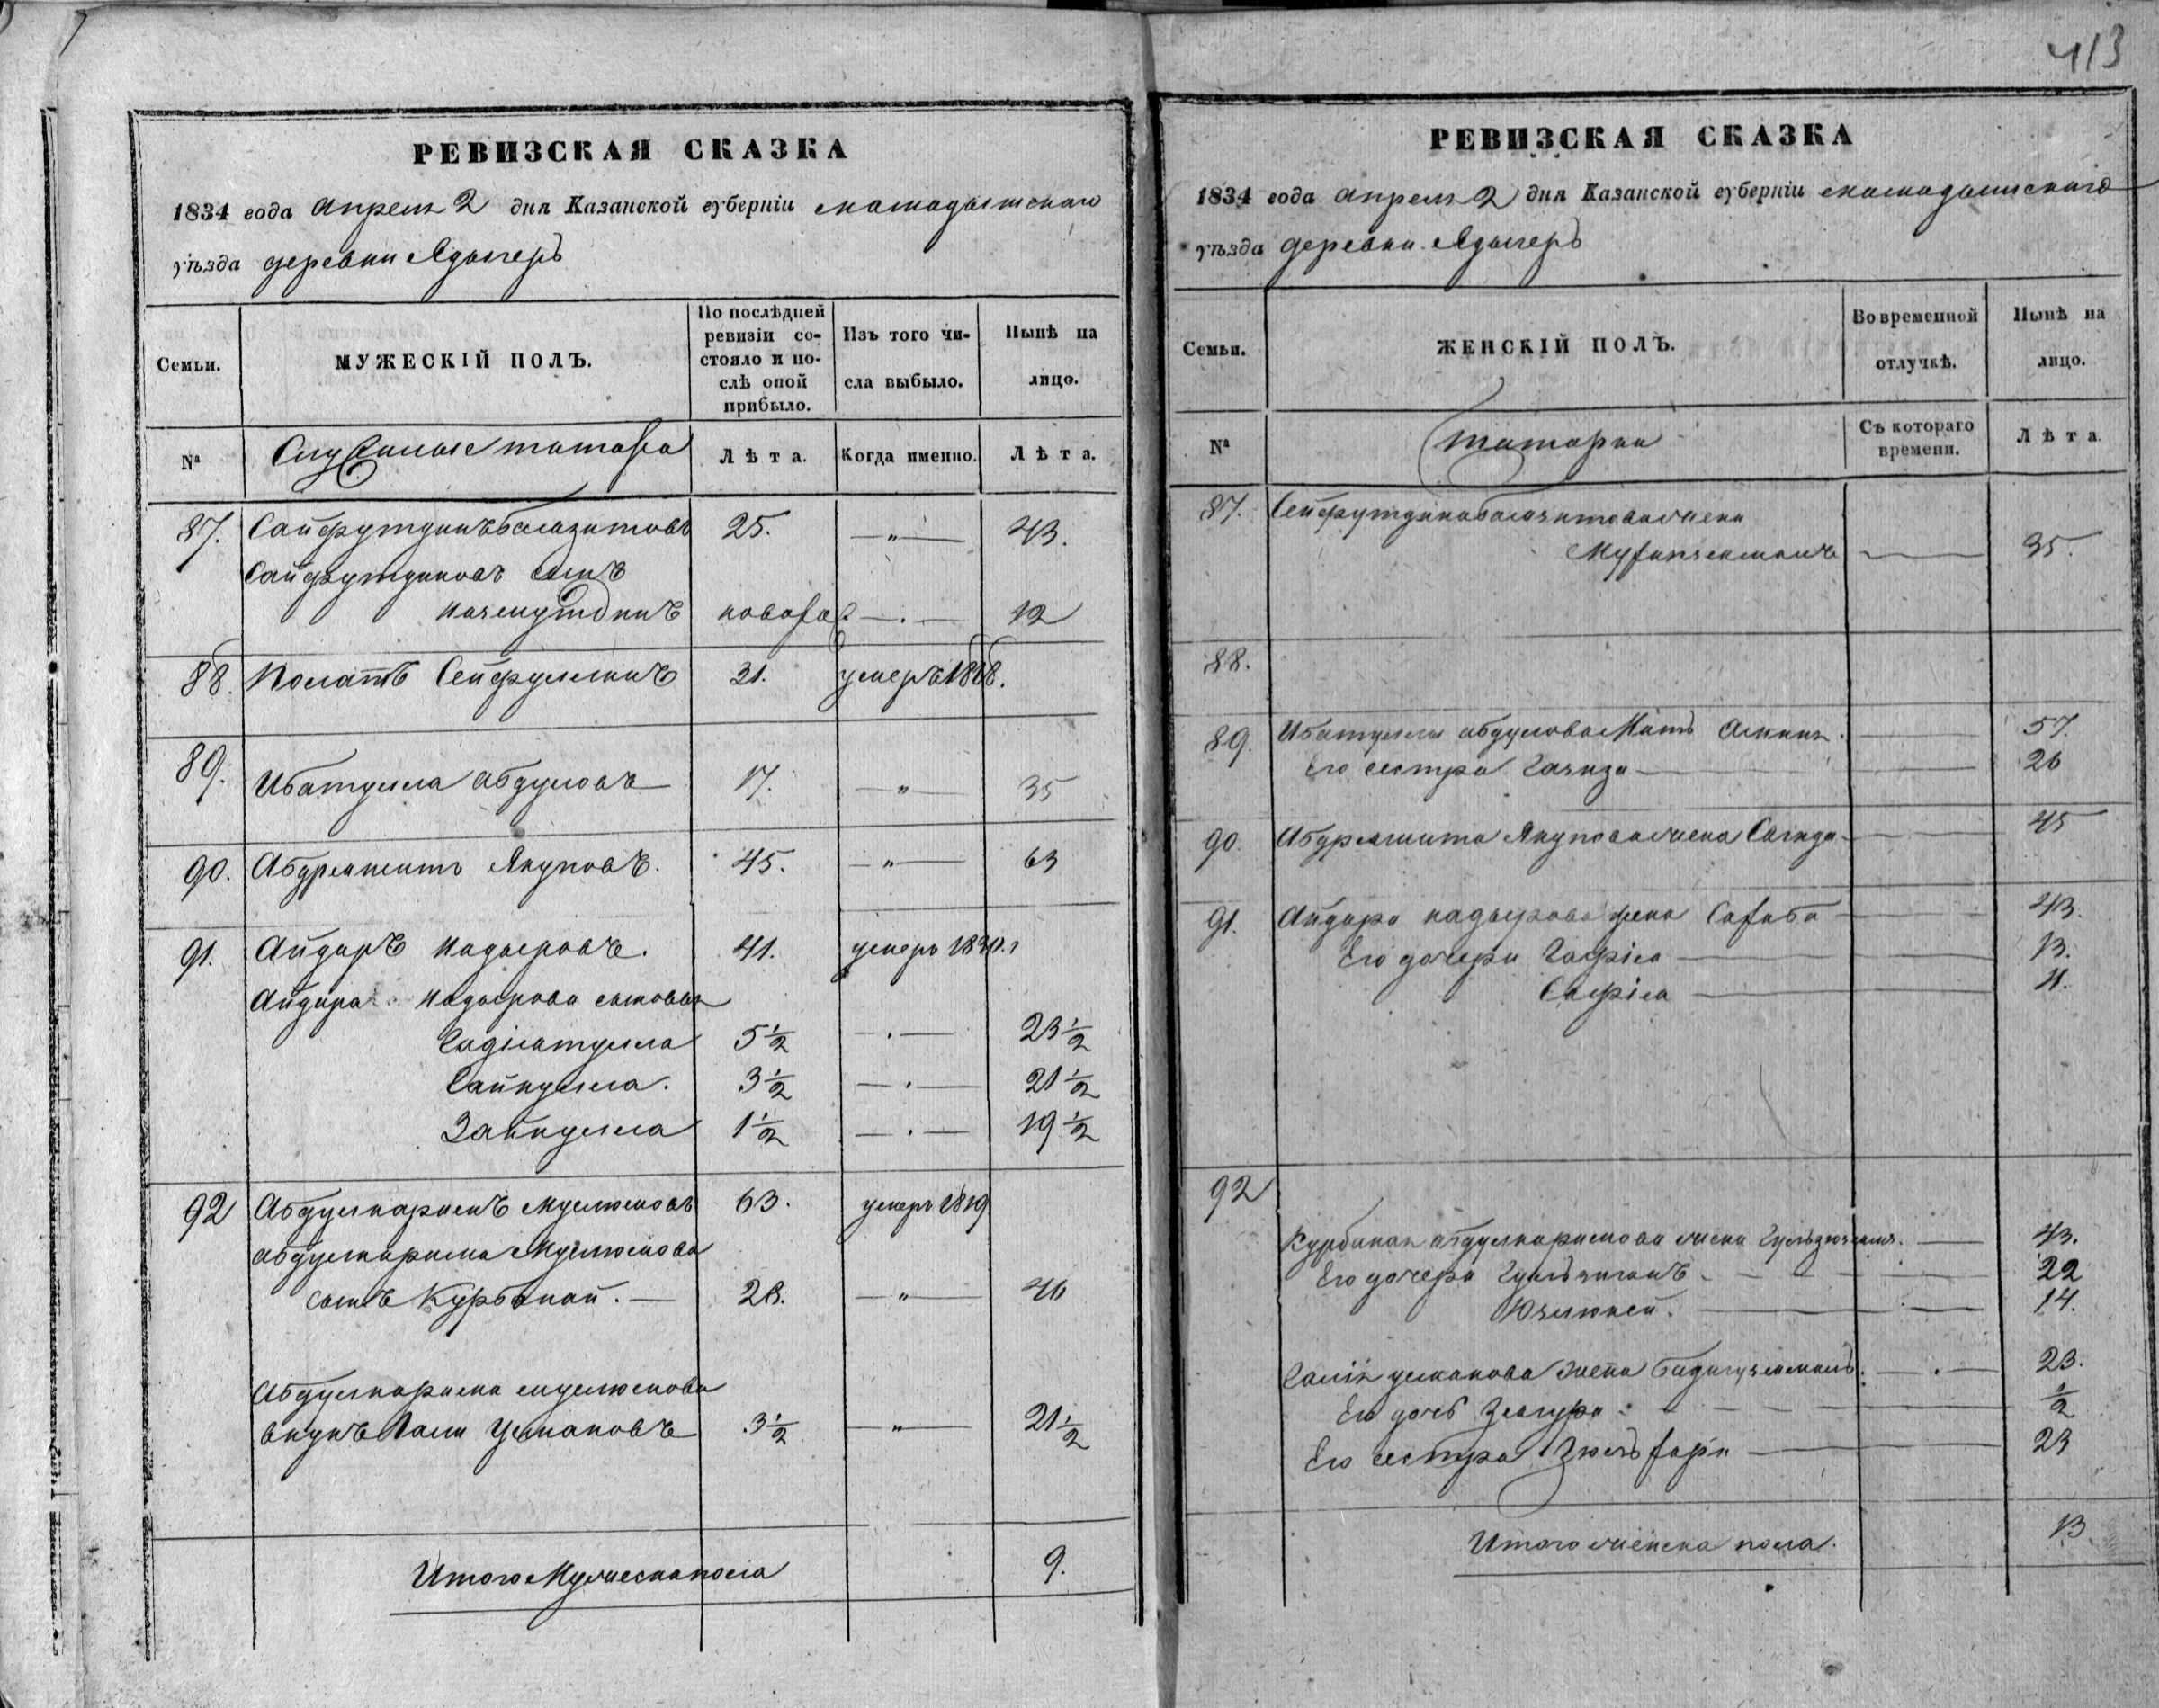 413
РЕВИЗСКАЯ СКАЗКА
1834 года апреля 2 дня Казанской губерніи мамадышскаго
уѣзда деревни Адаперъ
Семьи. МУЖЕСКІЙ ПОЛЪ. По послѣдней ревизіи состояло и послѣ оной прибыло. Изъ того числа выбыло. Нынѣ на лицо.
№ Служилые татара Лѣта. Когда именно. Лѣта.
87. Сайфутдинъ Баязитовъ 25. — " — 43.
Сайфутдиновъ сынъ
новорож — . — 12
88. Сейфулинъ 21. умеръ 1818.
89. Ибатулла Абдуловъ 17. — " — 35
90. Якуповъ. 45. — " — 63
91. Айдаръ Кадыровъ. 41. умеръ 1830.г
Айдара Кадырова сыновья
Гадіатулла 5 1/2 — . — 23 1/2
3 1/2 — . — 21 1/2
Зайнулла 1 1/2 — . — 19 1/2
92 Абдулкаримъ Муслюмовъ 63. умеръ 1819
Абдулкарима Муслюмова
сынъ Курбанай. — 28. — " — 46
Абдулкарима Муслюмова
внукъ Гали Усмановъ 3 1/2 — " — 21 1/2
Итого Мужеска пола 9.
РЕВИЗСКАЯ СКАЗКА
1834 года апреля 2 дня Казанской губерніи мамадышскаго
уѣзда деревни Адаперъ
Семьи. ЖЕНСКІЙ ПОЛЪ. Во временной отлучкѣ. Нынѣ на лицо.
№ татарки Съ котораго времени. Лѣта.
87. Сейфутдина Баязитова жена
— 35.
88.
89. Ибатуллы Абдулова Мать — 57.
Его сестра Газиза — 26
90. Якупова жена Сагида — 45
91. Айдара Кадырова жена — 43.
Его дочери Гафіа — 13.
Сафіа — 11.
92
Курбаная Абдулкаримова жена — 43.
Его дочери — 22
— 14.
Галія Усманова жена — . — 23.
Его дочь — 1/2
Его сестра — 23
Итого женска пола. 13